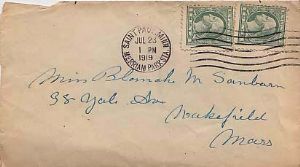 SAINT PAUL, MINN.
JUL 23
1 PM
1919
MERRIAM PARK STA.
Miss M. Sanburn
38 Yale Ave
Wakefield
Mass